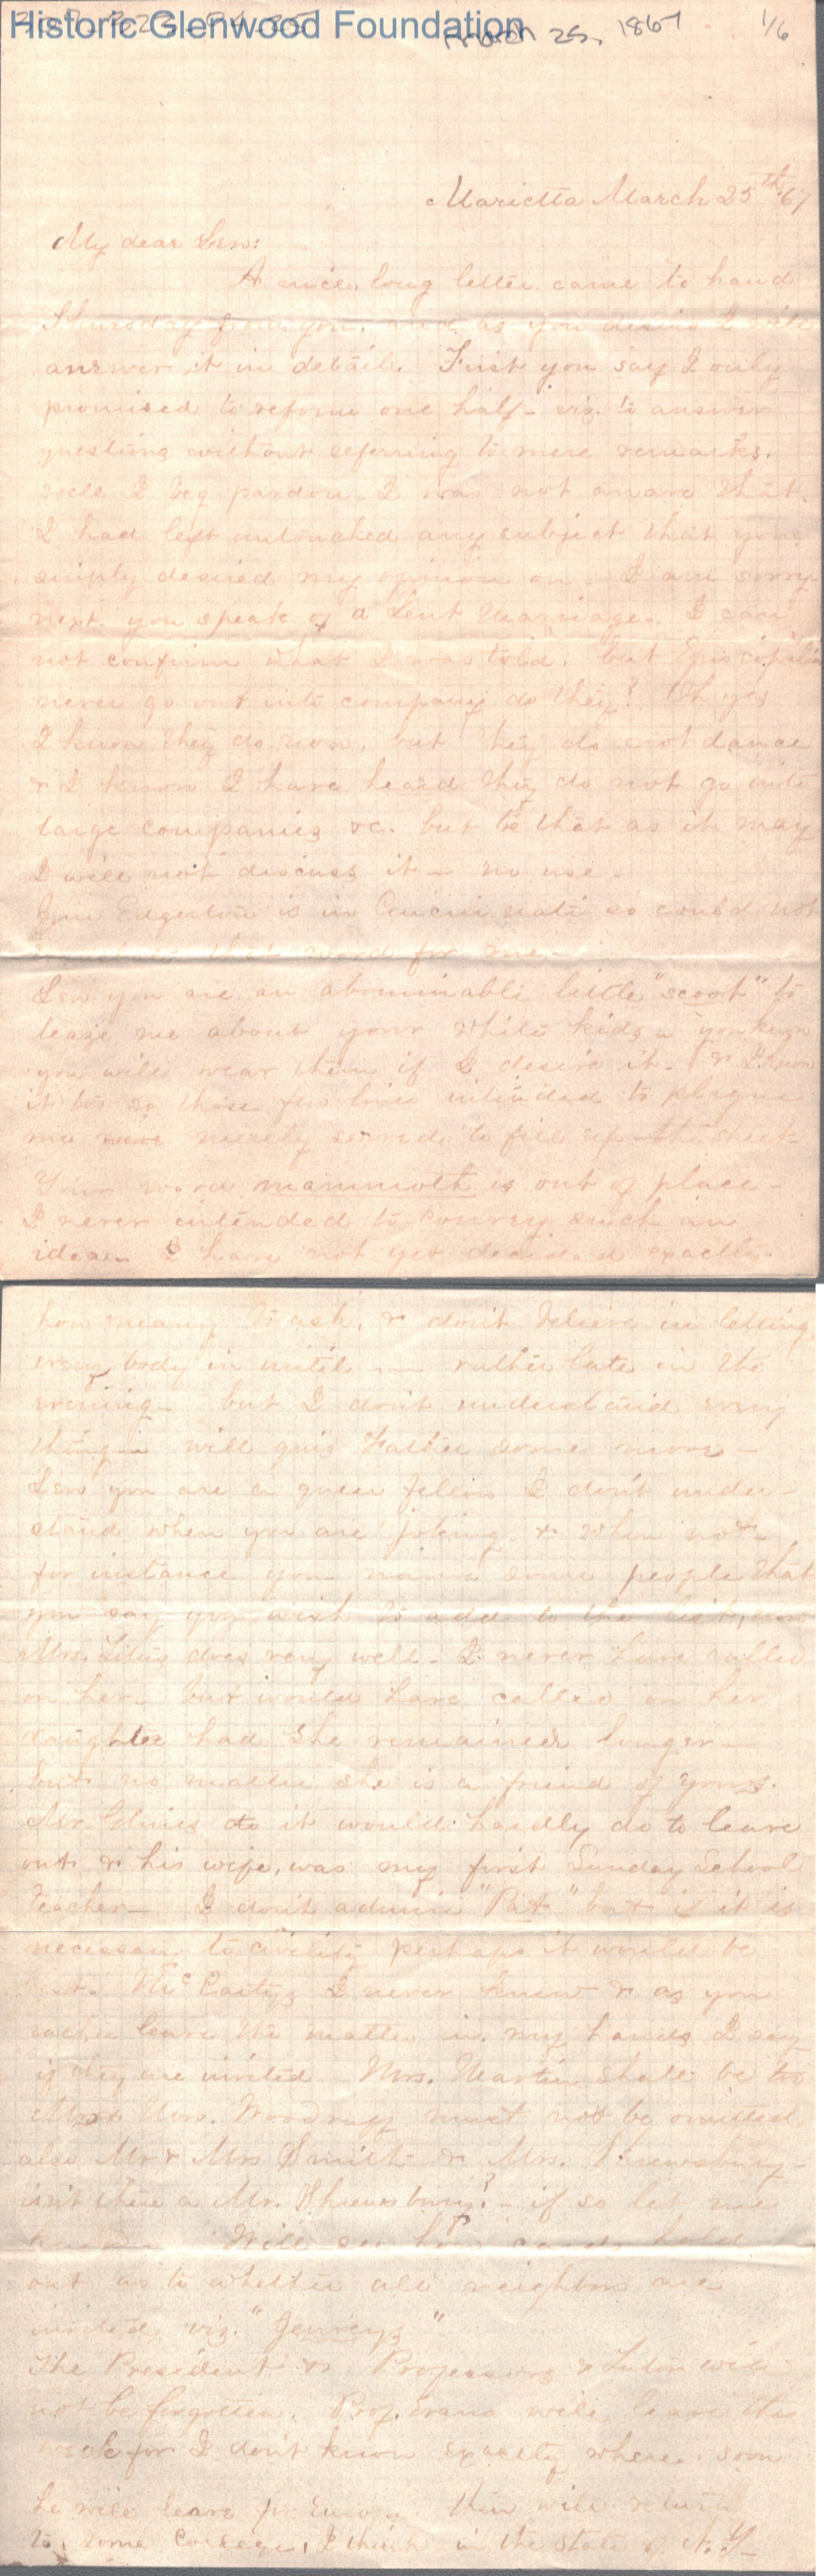 Historic Glenwood Foundation
March 25, 1867
1/6
Marietta March 25th 67
My dear Lew:
A nice long letter came to hand
Thursday from you, and as you desire I will
answer it in detail. First you say I only
promised to reform one half - viz. to answer
questions without referring to mere remarks.
Well I beg pardon - I was not aware that
I had left untouched any subject that you
simply desired my opinion on. I am sorry
next you speak of a Lent Marriage - I can
not confirm what I was told, but Episcopalians
never go out into company do they? Oh yes
I know they do now, but they do not dance
& I know I have heard they do not go into
large companies &c. but be that as it may
I will not discuss it - no use -
Edgerton is in Cincinnati so could not
that word for me -
Lew you are an abominable little "scoot" to
teaze me about your white kids - you know
you will wear them if I desire it - & I know
it too so those few lines intended to plague
me were merely served to fill up the sheet
Your word mammoth is out of place -
I never intended to convey such an
idea - I have not yet decided exactly
how many to ask, & don't believe in letting
every body in until - rather late in the
evening - but I don't understand every
thing - will quiz Father some more -
Lew you are a queer fellow I don't under-
stand when you are joking & when not -
for instance you name some people that
you say you wish to add to the list, now
Mrs. Titus does very well - I never have called
on her - but would have called on her
daughter had she remained longer -
but no matter she is a friend of yours.
Mr. do it would hardly do to leave
out & his wife, was my first Sunday School
Teacher - I don't admire "Pat" but if it is
necessary to civility perhaps it would be
best. McCartys I never knew & as you
rather leave the matter in my hands I say
if they are invited Mrs. Martin shall be too
Mrs. Woodruff must not be omitted
also Mr & Mrs Smith & Mrs. Shrewsbury -
isn't there a Mr. Shrewsbury? - if so let me
know - Will see how cards hold
out as to whether all neighbors are
invited, viz. "Jenveys"
The President & Professors & Tutor will
not be forgotten. Prof. Evans will leave this
week for I don't know exactly where. soon
he will leave for Europe. then will return
to some College, I think in the state of N.Y -